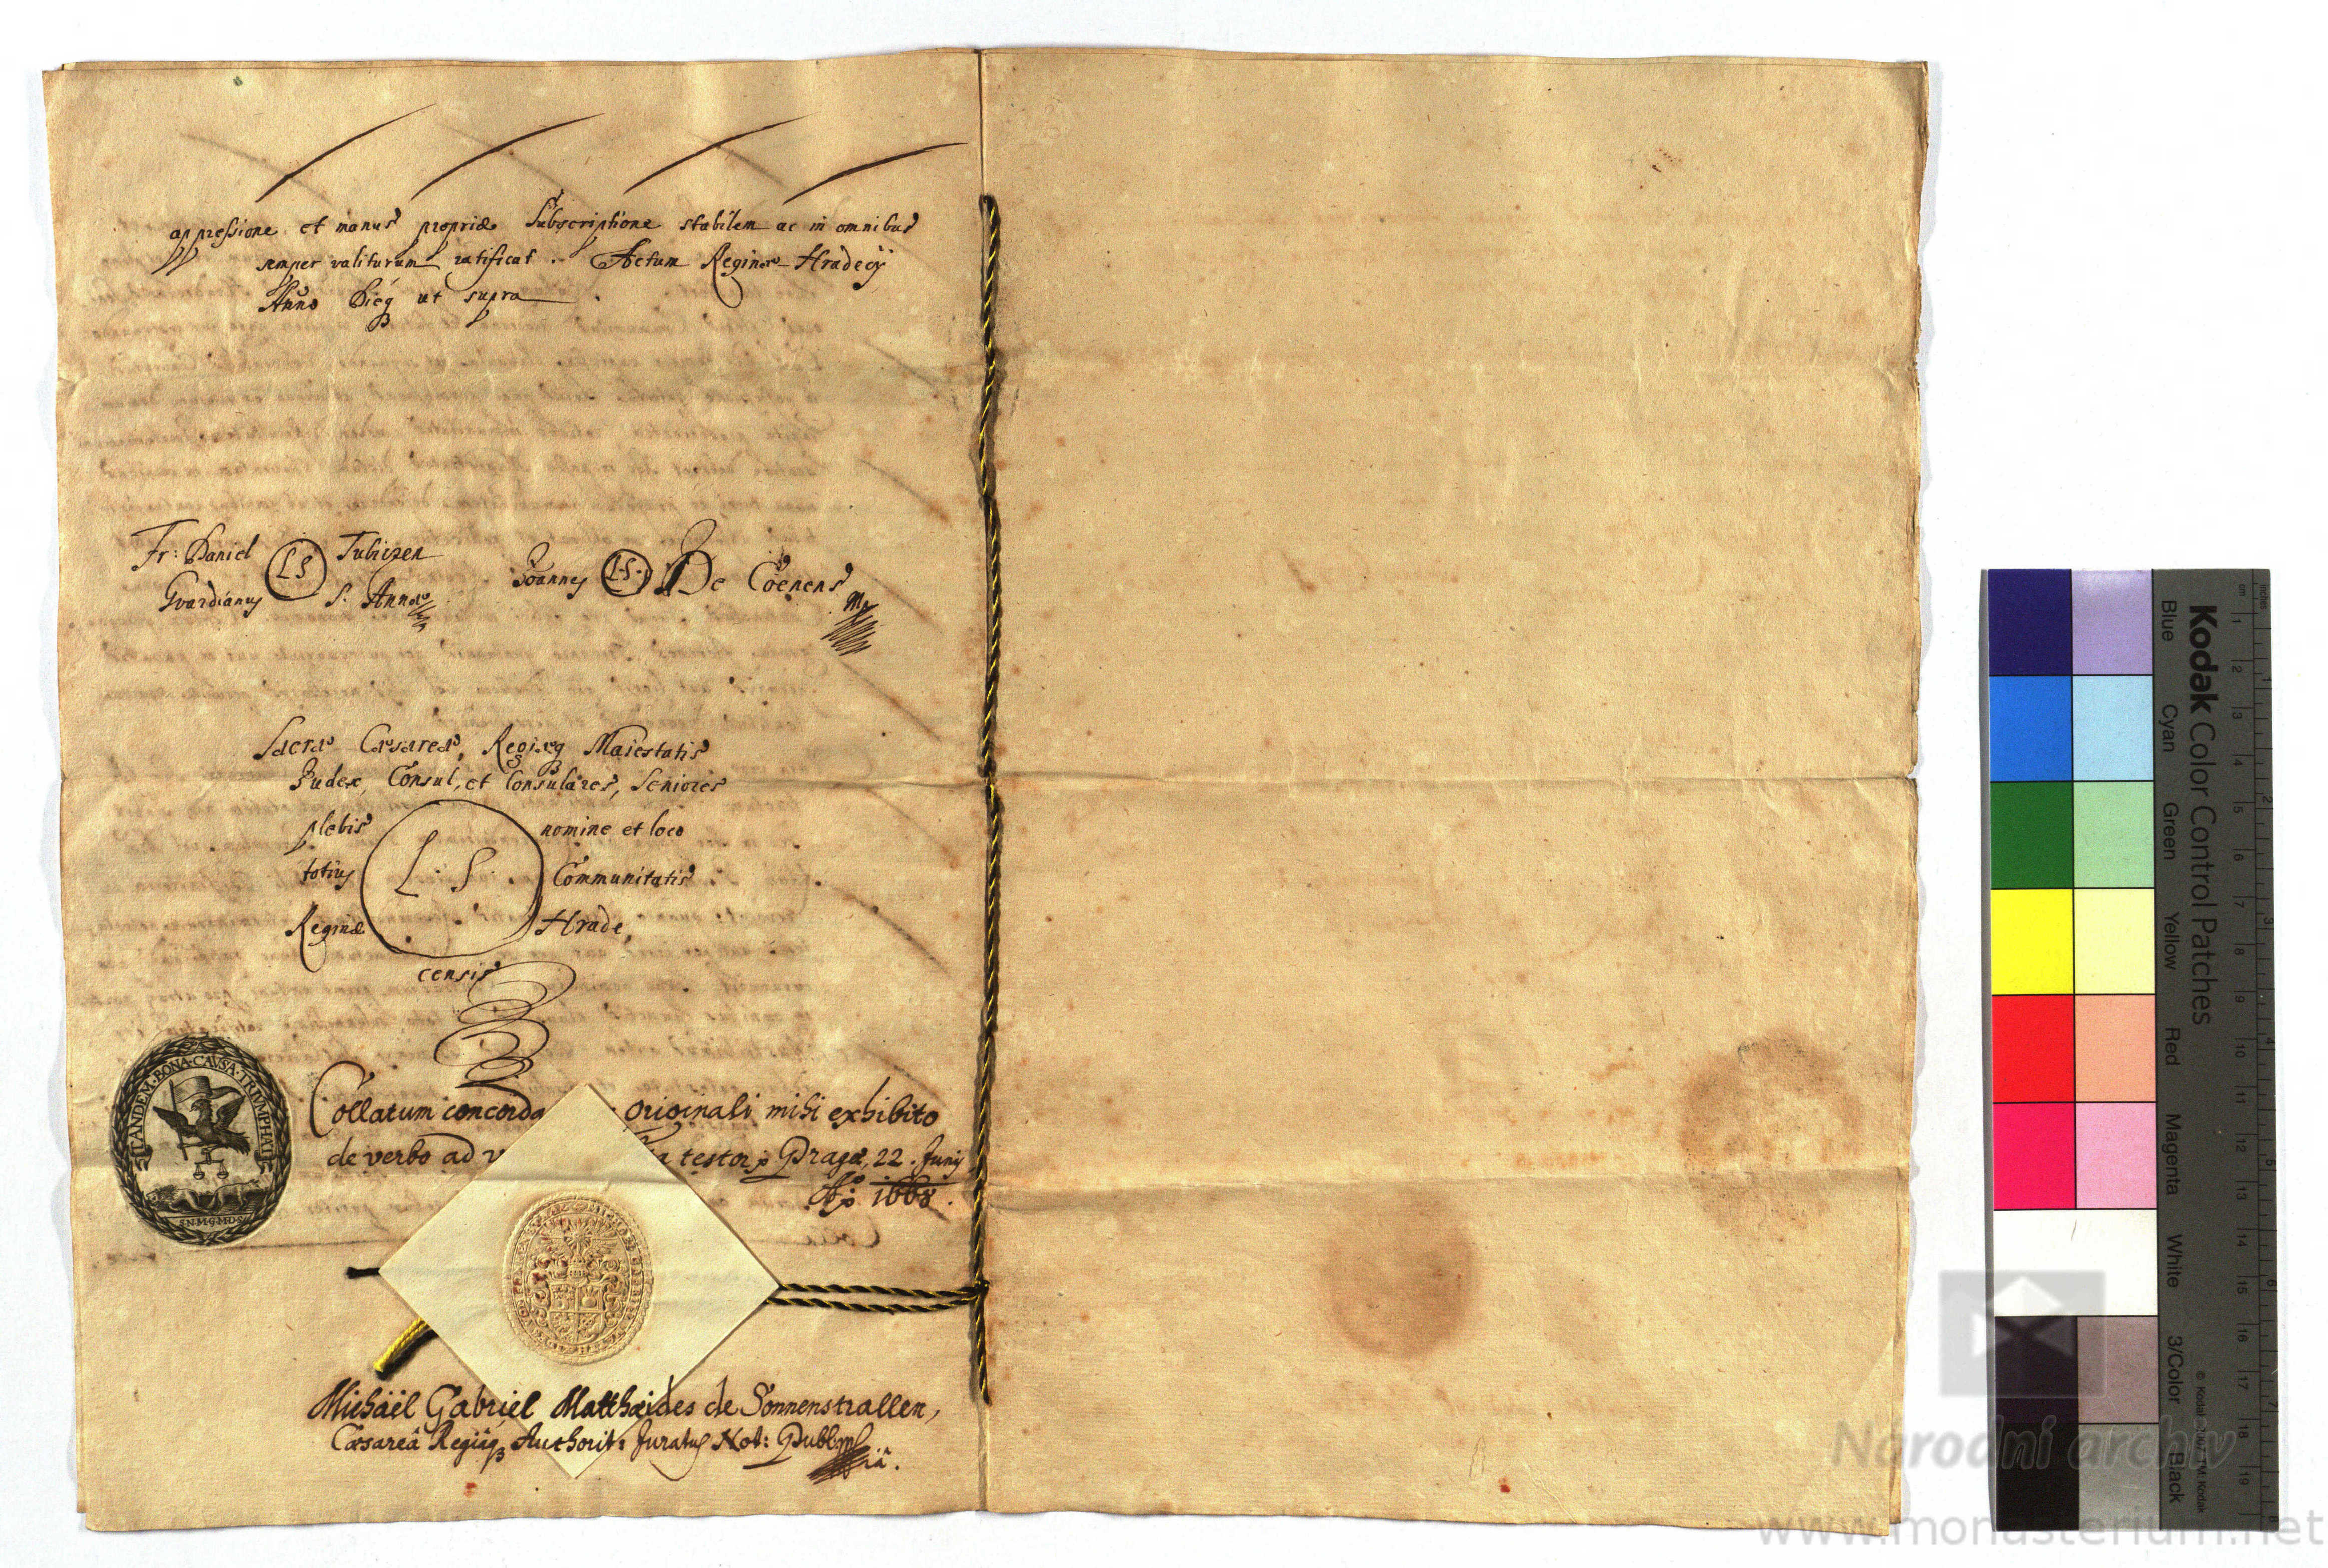 appressione et manus propriæ Subscriptione stabilem ac in omnibus
semper valiturum ratificat. Actum Reginæ Hradecÿ
Anno Dieq ut supra
Fr: Daniel LS Tubiczen
Guardianus S: Annæ
Joannes L.S. De Coenens mp
Sacræ Cæsareæ, Regiæq Maiestatis
Judex, Consul, et Consulares, Seniores
plebis nomine et loco
totius L. S. Communitatis
Reginæ Hrade,
censis
TANDEM·BONA·CAVSA·TRIVMPHAT
Collatum concorda originali mihi exhibito
de verbo ad v testor Pragæ, 22. Junij
Ao 1668.
S·N·M·G·M·D·S
Michaël Gabriel Matthæides de Sonnenstrallen,
Cæsareâ Regiâq Authorit: Juratus Not: Publ: mp
iâ.
Kodak Color Control Patches
Blue Cyan Green Yellow Red Magenta White 3/Color Black
inches
cm 1 2 3 4 5 6 7 8 9 10 11 12 13 14 15 16 17 18 19
© Kodak, 2007 TM: Kodak
Národní archiv
www.monasterium.net